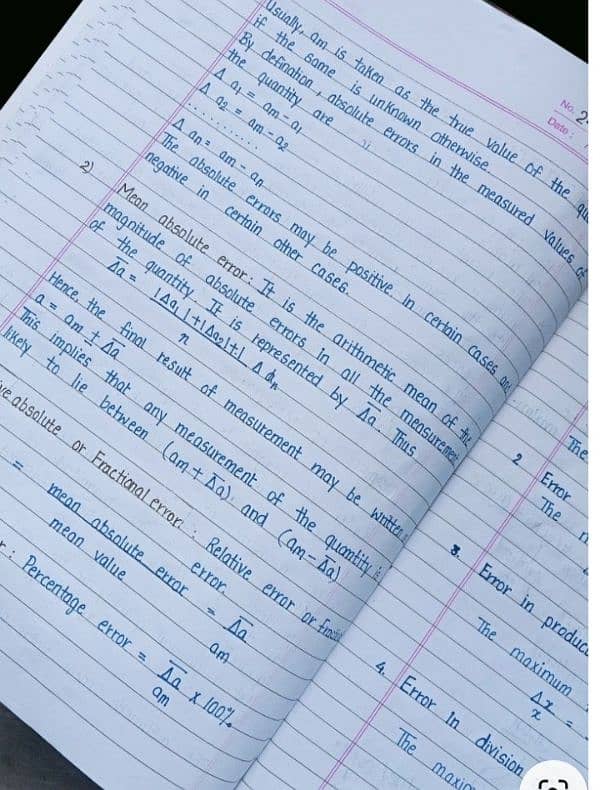 No. 2
Date:
Usually, am is taken as the true value of the
if the same is unknown otherwise.
By defination, absolute errors in the measured values of
the quantity are
Δ a₁ = am - a₁
Δ a₂ = am - a₂
............
Δ an = am - an
The absolute errors may be positive in certain cases and
negative in certain other cases.
2) Mean absolute error: It is the arithmetic mean of the
magnitude of absolute errors in all the measurement
of the quantity. It is represented by Δ̅a̅. Thus
Δ̅a̅ = |Δa₁|+|Δa₂|+|.. Δ an
n
Hence, the final result of measurement may be written
a = am ± Δ̅a̅
This implies that any measurement of the quantity is
likely to lie between (am + Δ̅a̅) and (am - Δ̅a̅)
ve absolute or Fractional error: Relative error or
error.
= mean absolute error = Δ̅a̅
mean value am
r: Percentage error = Δ̅a̅ x 100%
am
The
2 Error
The
3. Error in produc
The maximum
Δx =
x
4. Error in division
The maxim